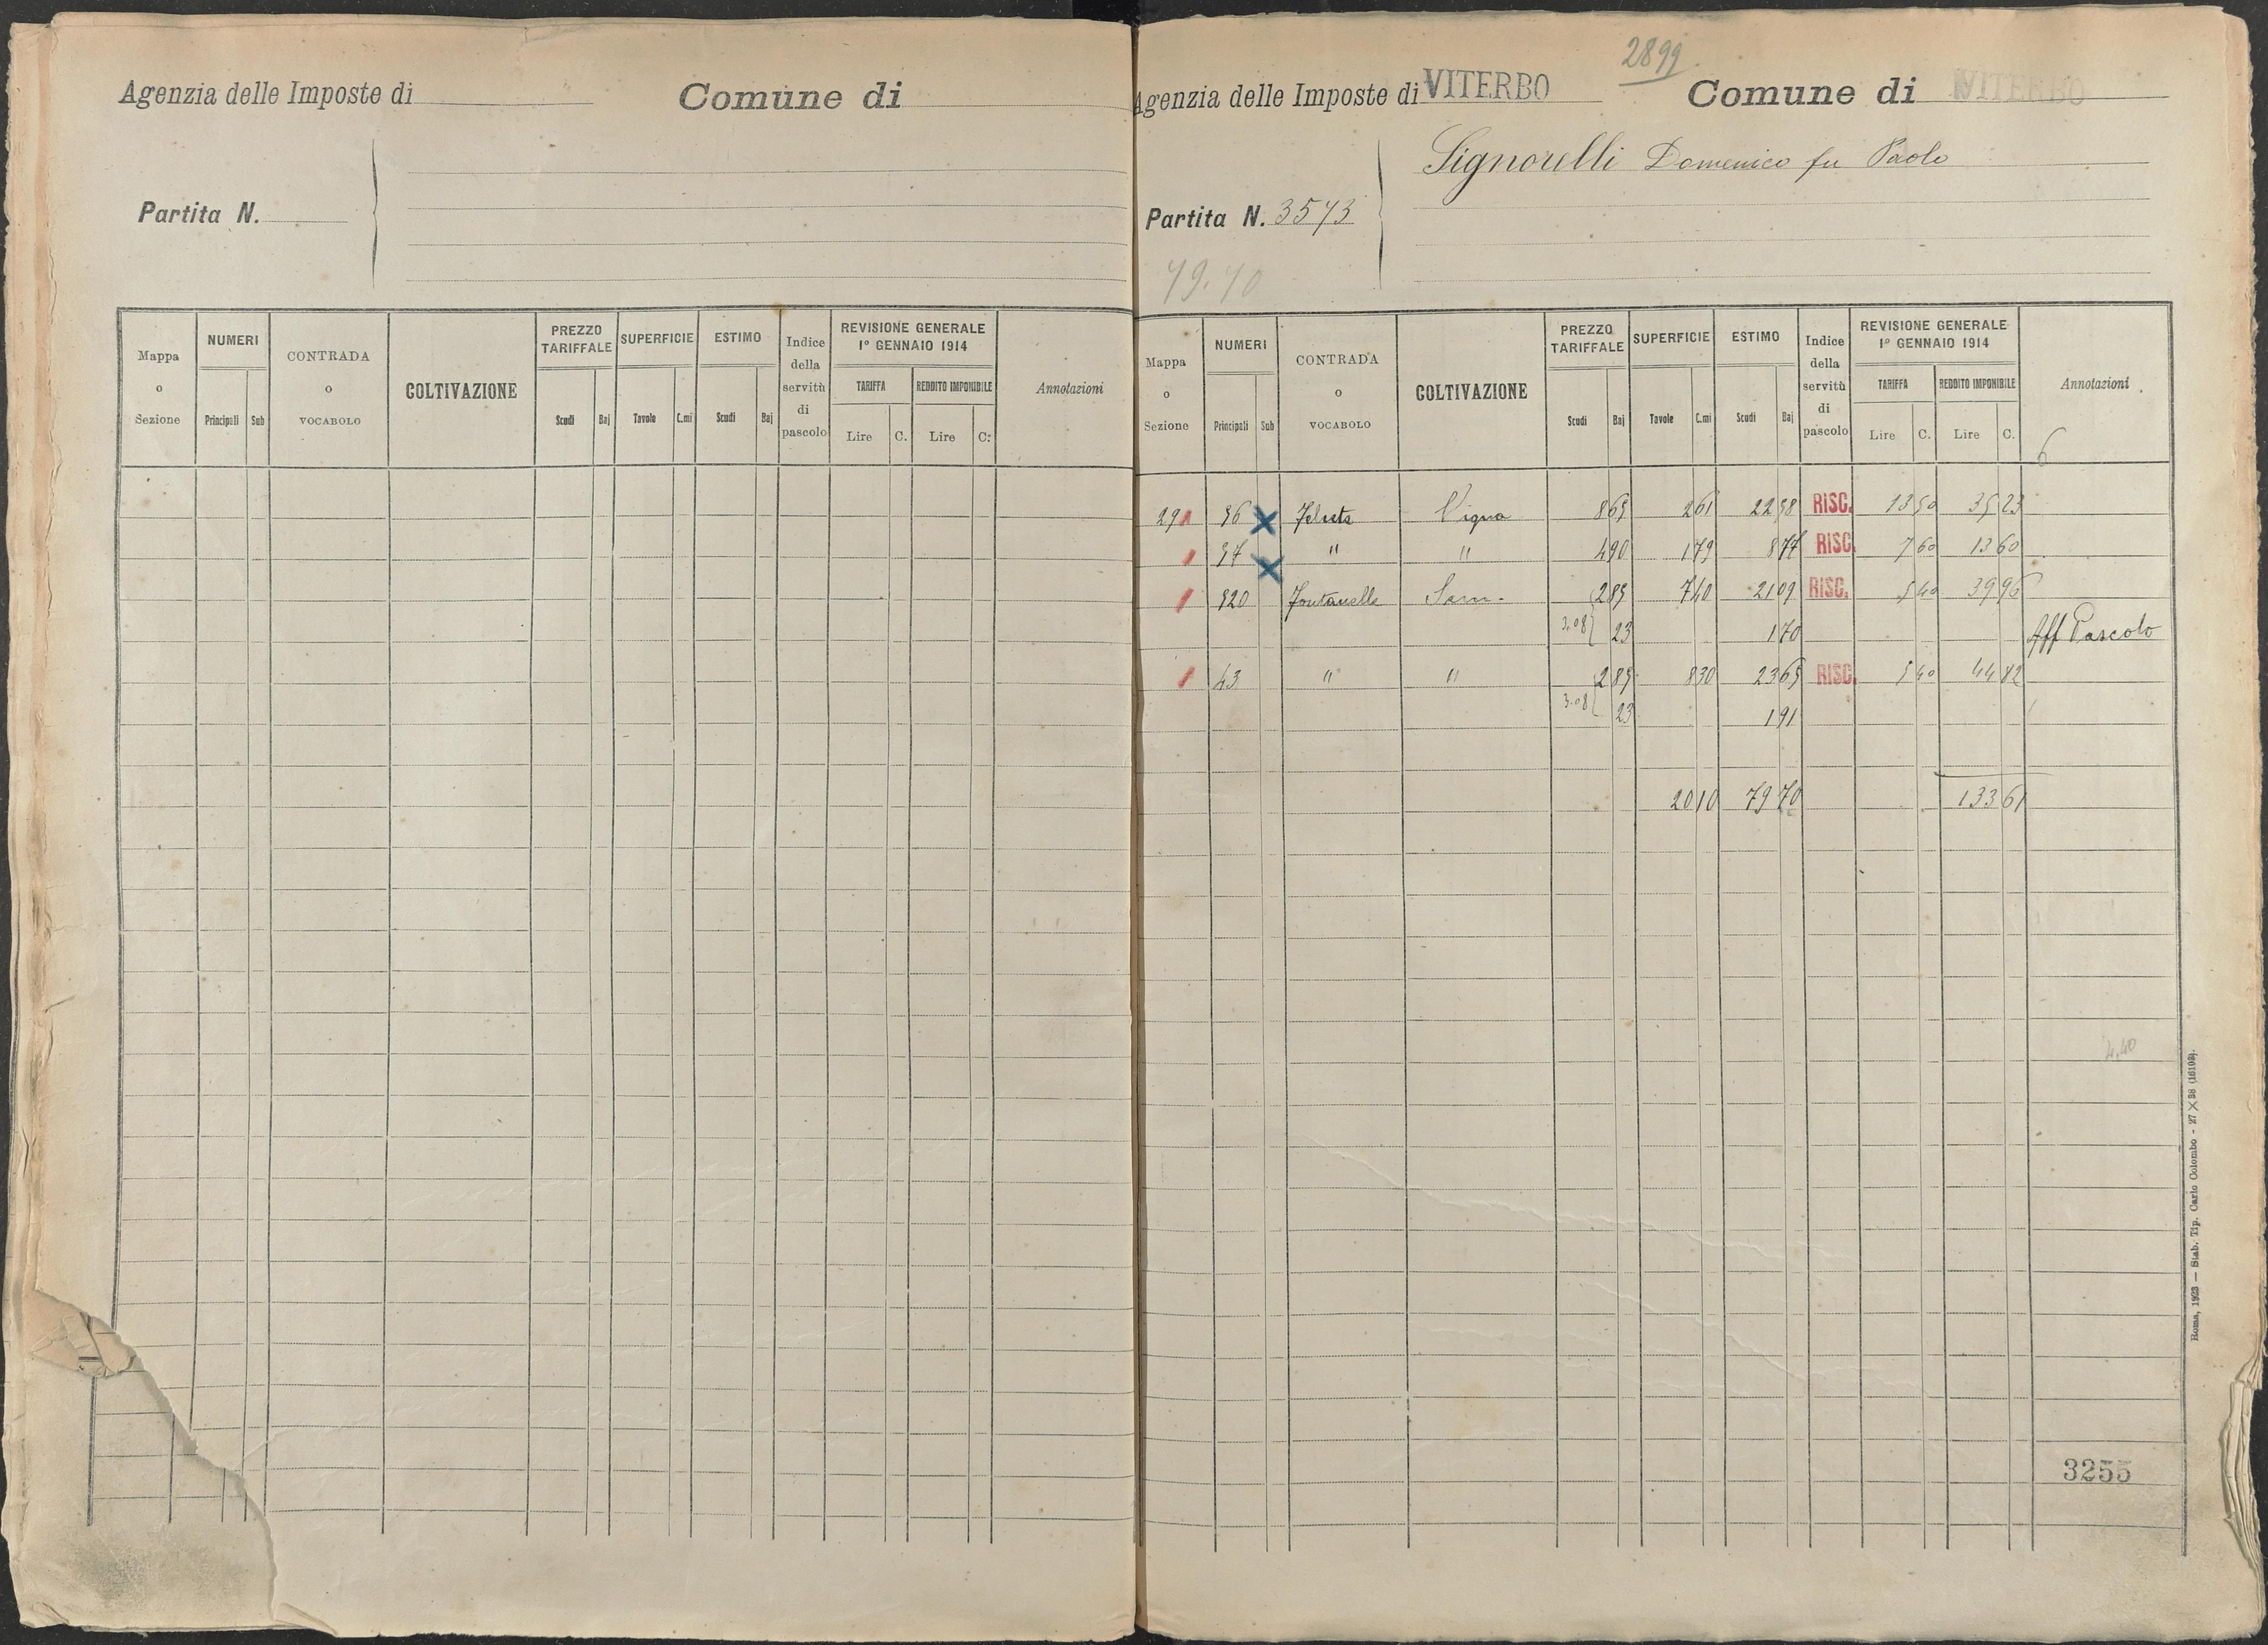 Agenzia delle Imposte di
Comune di
Partita N.
Mappa o Sezione
NUMERI
Principali Sub
CONTRADA o VOCABOLO
COLTIVAZIONE
PREZZO TARIFFALE
Scudi Baj
SUPERFICIE
Tavole C.mi
ESTIMO
Scudi Baj
Indice della servitù di pascolo
REVISIONE GENERALE
1° GENNAIO 1914
TARIFFA REDDITO IMPONIBILE
Lire C. Lire C.
Annotazioni
2899
Agenzia delle Imposte di VITERBO
Comune di VITERBO
Signorelli Domenico fu Paolo
Partita N. 3573
79.70
Mappa o Sezione
NUMERI
Principali Sub
CONTRADA o VOCABOLO
COLTIVAZIONE
PREZZO TARIFFALE
Scudi Baj
SUPERFICIE
Tavole C.mi
ESTIMO
Scudi Baj
Indice della servitù di pascolo
REVISIONE GENERALE
1° GENNAIO 1914
TARIFFA REDDITO IMPONIBILE
Lire C. Lire C.
Annotazioni
6
29 1 96 X Vigna 8 65 2 61 22 58 RISC. 13 50 35 23
1 97 X " " 4 90 1 79 8 77 RISC. 7 60 13 60
1 Fontanella Sem. 2 85 7 40 21 09 RISC. 5 40 39 96
3.08 23 1 70 Aff Pascolo
1 43 " " 2 85 8 30 23 65 RISC. 5 40 44 82
3.08 23 1 91
20 10 79 70 133 61
Roma, 1923 — Stab. Tip. Carlo Colombo - 27 X 38 (16108).
3255